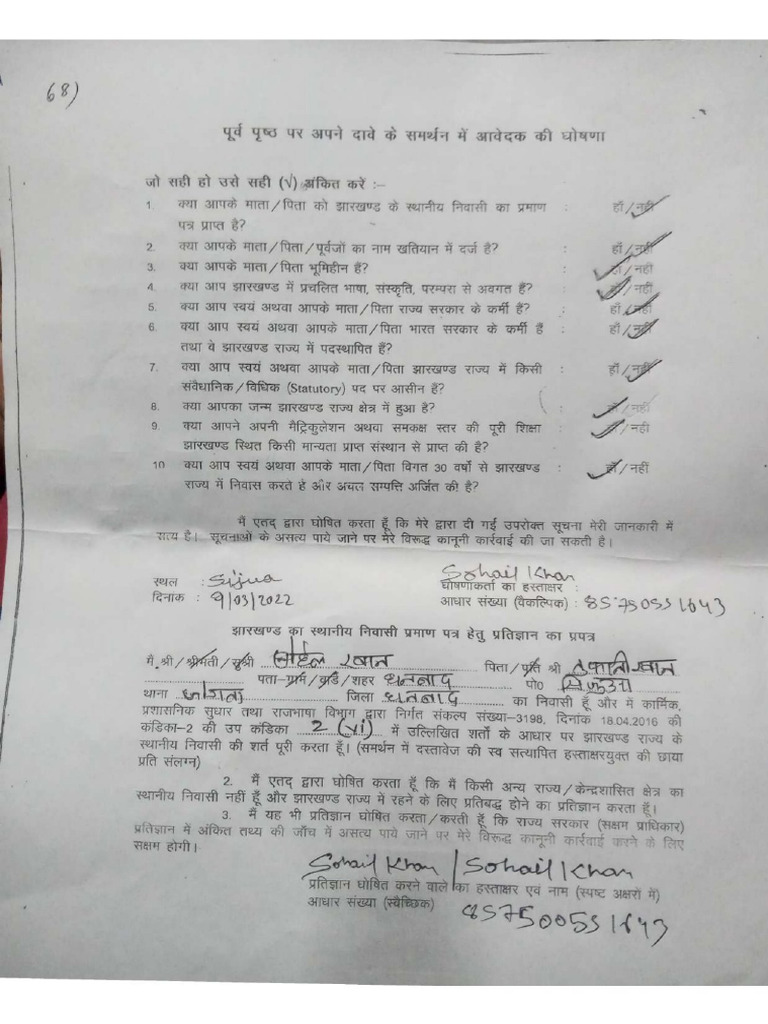 68)
पूर्व पृष्ठ पर अपने दावे के समर्थन में आवेदक की घोषणा
जो सही हो उसे सही (√) अंकित करें :–
1. क्या आपके माता/पिता को झारखण्ड के स्थानीय निवासी का प्रमाण : हाँ/नहीं
पत्र प्राप्त है?
2. क्या आपके माता/पिता/पूर्वजों का नाम खतियान में दर्ज है? : हाँ/नहीं
3. क्या आपके माता/पिता भूमिहीन हैं? : हाँ/नहीं
4. क्या आप झारखण्ड में प्रचलित भाषा, संस्कृति, परम्परा से अवगत हैं? : हाँ/नहीं
5. क्या आप स्वयं अथवा आपके माता/पिता राज्य सरकार के कर्मी हैं? : हाँ/नहीं
6. क्या आप स्वयं अथवा आपके माता/पिता भारत सरकार के कर्मी हैं : हाँ/नहीं
तथा वे झारखण्ड राज्य में पदस्थापित हैं?
7. क्या आप स्वयं अथवा आपके माता/पिता झारखण्ड राज्य में किसी : हाँ/नहीं
संवैधानिक/विधिक (Statutory) पद पर आसीन हैं?
8. क्या आपका जन्म झारखण्ड राज्य क्षेत्र में हुआ है? : हाँ/नहीं
9. क्या आपने अपनी मैट्रिकुलेशन अथवा समकक्ष स्तर की पूरी शिक्षा : हाँ/नहीं
झारखण्ड स्थित किसी मान्यता प्राप्त संस्थान से प्राप्त की है?
10. क्या आप स्वयं अथवा आपके माता/पिता विगत 30 वर्षो से झारखण्ड : हाँ/नहीं
राज्य में निवास करते हैं और अचल सम्पत्ति अर्जित की है?
मैं एतद् द्वारा घोषित करता हूँ कि मेरे द्वारा दी गई उपरोक्त सूचना मेरी जानकारी में
सत्य है। सूचनाओं के असत्य पाये जाने पर मेरे विरूद्ध कानूनी कार्रवाई की जा सकती है।
Sohail Khan
स्थल : Sijua घोषणाकर्ता का हस्ताक्षर :
दिनांक : 9/03/2022 आधार संख्या (वैकल्पिक) :
झारखण्ड का स्थानीय निवासी प्रमाण पत्र हेतु प्रतिज्ञान का प्रपत्र
मैं श्री/श्रीमती/सुश्री सोहेल खान पिता/पति श्री खान
पता-ग्राम/वार्ड/शहर धनबाद पो० सिजुआ
थाना जोगता जिला धनबाद का निवासी हूँ और मैं कार्मिक,
प्रशासनिक सुधार तथा राजभाषा विभाग द्वारा निर्गत संकल्प संख्या–3198, दिनांक 18.04.2016 की
कंडिका-2 की उप कंडिका 2 (vi) में उल्लिखित शर्तो के आधार पर झारखण्ड राज्य के
स्थानीय निवासी की शर्त पूरी करता हूँ। (समर्थन में दस्तावेज की स्व सत्यापित हस्ताक्षरयुक्त की छाया
प्रति संलग्न)
2. मैं एतद् द्वारा घोषित करता हूँ कि मैं किसी अन्य राज्य/केन्द्रशासित क्षेत्र का
स्थानीय निवासी नहीं हूँ और झारखण्ड राज्य में रहने के लिए प्रतिबद्ध होने का प्रतिज्ञान करता हूँ।
3. मैं यह भी प्रतिज्ञान घोषित करता/करती हूँ कि राज्य सरकार (सक्षम प्राधिकार)
प्रतिज्ञान में अंकित तथ्य की जाँच में असत्य पाये जाने पर मेरे विरूद्ध कानूनी कार्रवाई करने के लिए
सक्षम होगी।
Sohail Khan / Sohail Khan
प्रतिज्ञान घोषित करने वाले का हस्ताक्षर एवं नाम (स्पष्ट अक्षरों में)
आधार संख्या (स्वैच्छिक)